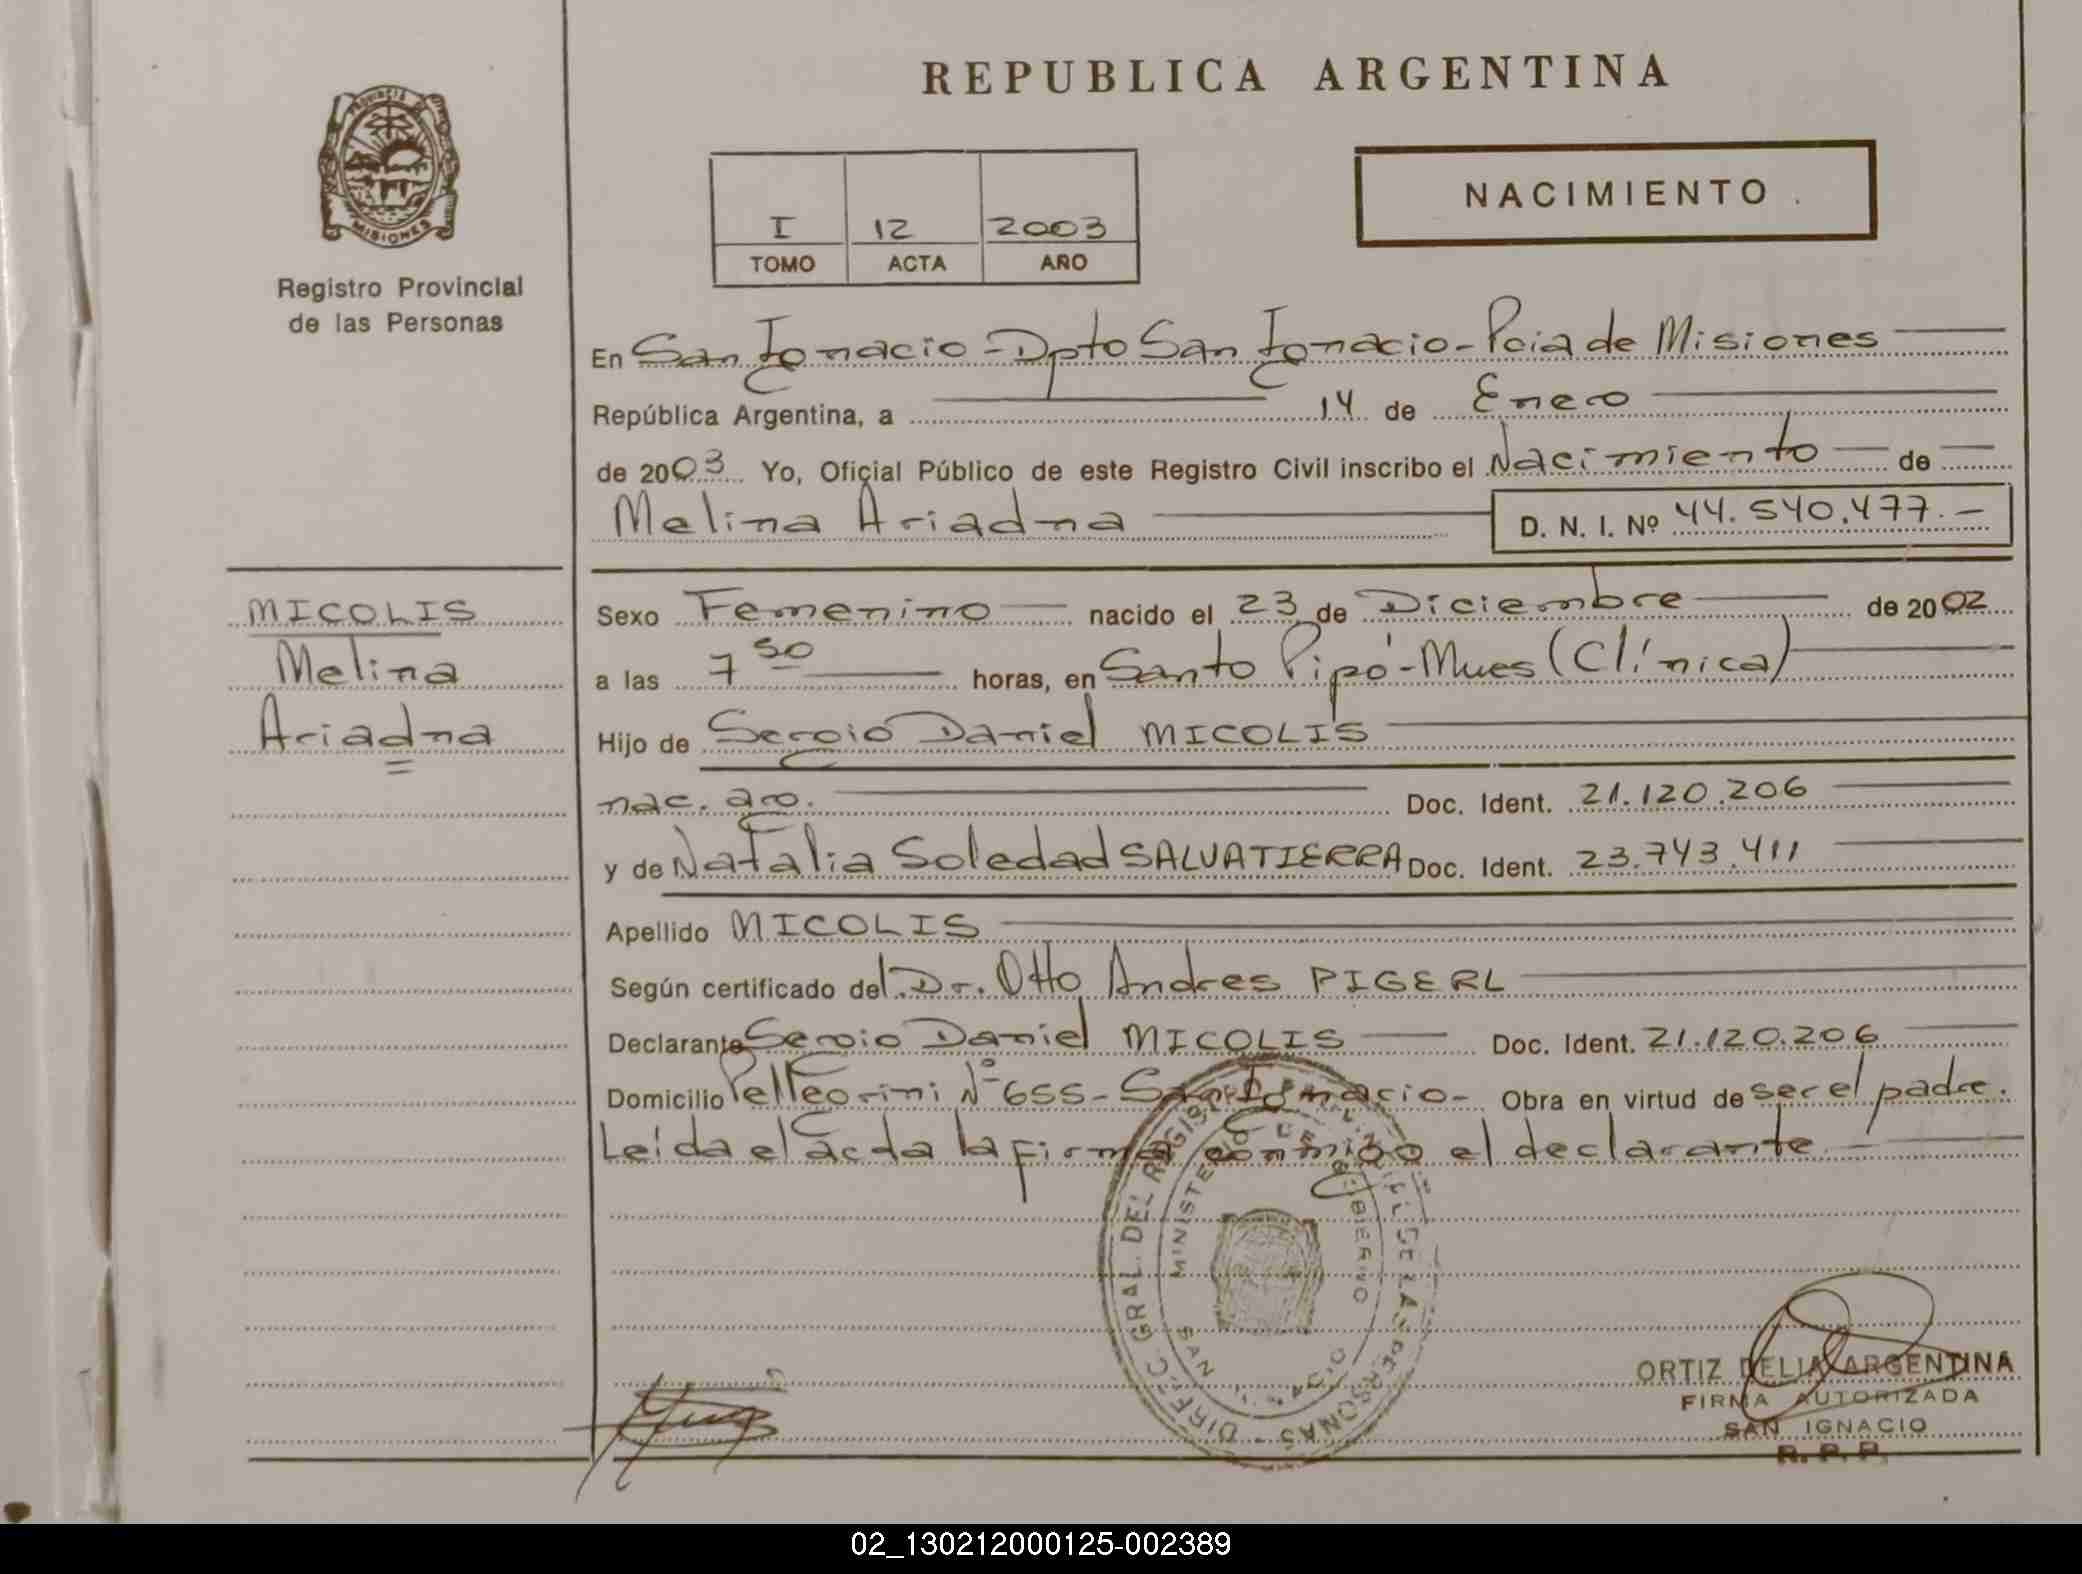 REPUBLICA ARGENTINA
PROVINCIA DE
MISIONES
Registro Provincial
de las Personas
I 12 2003
TOMO ACTA AÑO
NACIMIENTO
En San Ignacio - Dpto San Ignacio - Pcia de Misiones
República Argentina, a 14 de Enero
de 2003 Yo, Oficial Público de este Registro Civil inscribo el Nacimiento de
Melina Ariadna D. N. I. Nº 44.540.477.-
MICOLIS
Melina
Ariadna
Sexo Femenino nacido el 23 de Diciembre de 2002
a las 7 50 horas, en Santo Pipó - Mnes (Clínica)
Hijo de Sergio Daniel MICOLIS
nac. arg. Doc. Ident. 21.120.206
y de Natalia Soledad SALVATIERRA Doc. Ident. 23.743.411
Apellido MICOLIS
Según certificado del Dr. Otto Andres PIGERL
Declarante Sergio Daniel MICOLIS Doc. Ident. 21.120.206
Domicilio Pellegrini Nº 655 - San Ignacio - Obra en virtud de ser el padre.
Leída el acta la firma conmigo el declarante
DIREC. GRAL. DEL REGISTRO PROVINCIAL DE LAS PERSONAS
MINISTERIO DE GOBIERNO
SAN IGNACIO
ORTIZ DELIA ARGENTINA
FIRMA AUTORIZADA
SAN IGNACIO
R. P. P.
02_130212000125-002389